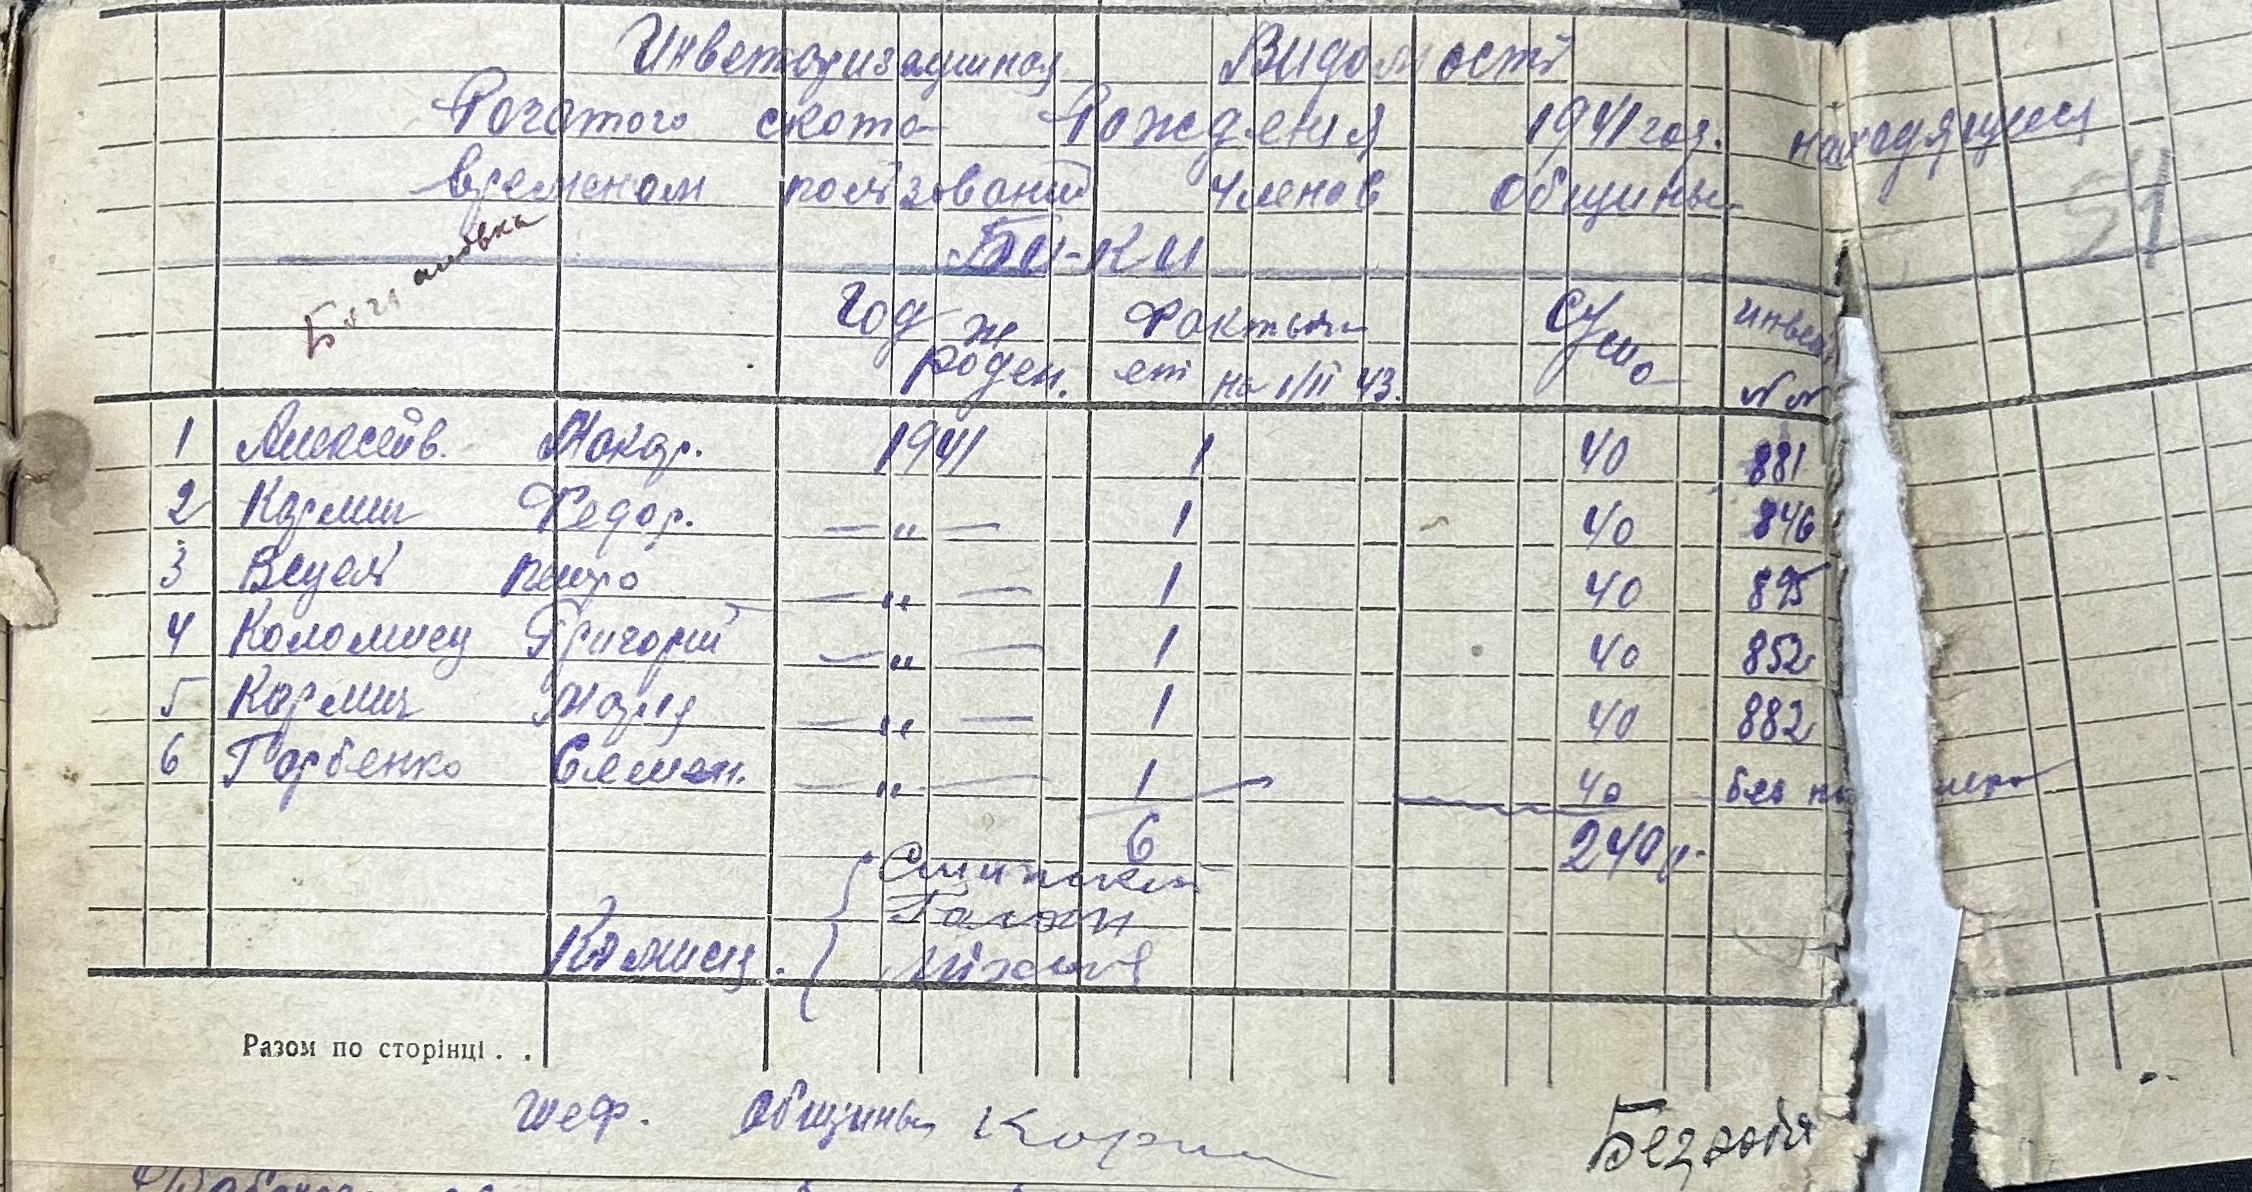 Инветаризациина Видомость
Рогатого скота Рождения 1941 год. находящиеся
временом ползовании членов общины
54
Би-ки
Год рожден. Фактычи ет на 1/II 43. Сумма инвен №№
1 Алексеев. Макар. 1941 1 40 881
2 Кармиг Федор. — „ — 1 40 846
3 Вецел Петро — „ — 1 40 895
4 Коломиец Григорий — „ — 1 40 852
5 Кармиг — „ — 1 40 882
6 Горбенко Семен. — „ — 1 40 без номера
6 240 р.
Комисия.
Разом по сторінці . .
Шеф. общины